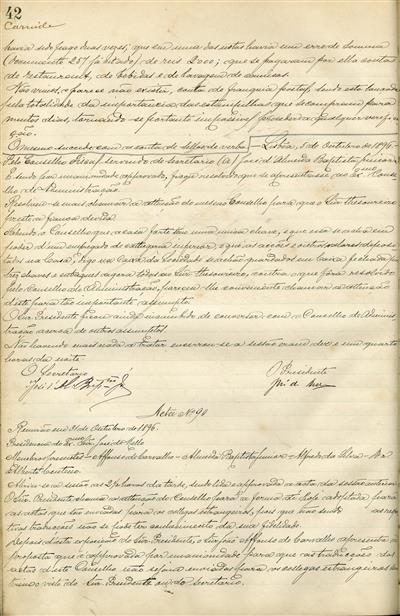 42
Carnide
havia sido pago duas vezes; que em uma das notas havia um erro de somma
(Documento 257 já citado) de reis 2000; que se pagaram por ella contas
de restaurant, de bebidas e de lavagem de
Não vimos, e parece não existir, conta de franquia postal, sendo esta lançada
pela totalidade da importancia das estampilhas que se compram para
muitos dias, tornando-se portanto impossivel proceder a qualquer verifi-
cação.
O mesmo succede com a conta de sellos de verba. Lisboa, 5 de Outubro de 1896.
Pelo Conselho Fiscal servindo de Secretario (a) José d'Almeida Baptista Junior
E sendo lida e unanimemente approvado, ficou resolvido que se apresentasse ao Conse-
lho de Administração.
Resolveu-se mais chamar a attenção do mesmo Conselho para que o Snr Thesoureiro
preste a fiança devida.
Sabendo o Conselho que a casa forte tem uma unica chave, e que essa se acha em
poder d'um empregado de cathegoria inferior, e que as acções e outros valores deposi-
tados na Caixa da Sociedade se acham guardados em caixa fechada por
tres chaves e entregues agora todos ao Snr thesoureiro, contra o que fôra resolvido
pelo Conselho de Administração, pareceu-lhe conveniente chamar a attenção
d'este para tão importante assumpto.
O Snr Presidente ficou ainda incumbido de conversar com o Concelho de Adminis-
tração acerca de outros assumptos
Não havendo mais nada a tratar encerrou-se a sessão eram dez e um quarto
horas da noite
O Secretario O Presidente
José d'
Acta Nº 90
Reunião em 31 de Outubro de 1896.
Presidencia do Snr José de Mello
Membros presentes - Affonso de Carvalho - Almeida Baptista Junior - Alfredo da Silva - 
Alberto Centeno.
Abriu-se a sessão ás 2½ horas da tarde, sendo lida e approvada a acta da sessão anterior.
O Snr. Presidente chamou a attenção do Conselho para a forma até hoje adoptada para
as actas que são enviadas para os collegas estrangeiros, pois que não sendo as respe-
tivas traducções não se pode ter conhecimento da sua fidelidade.
Depois d'esta exposição do Snr Presidente, o Snr José Affonso de Carvalho apresenta a
proposta que é approvada por unanimidade para que as traducções das
actas d'este Conselho não sejam enviadas para os collegas estrangeiros sem
terem o visto do Snr Presidente ou do Secretario.